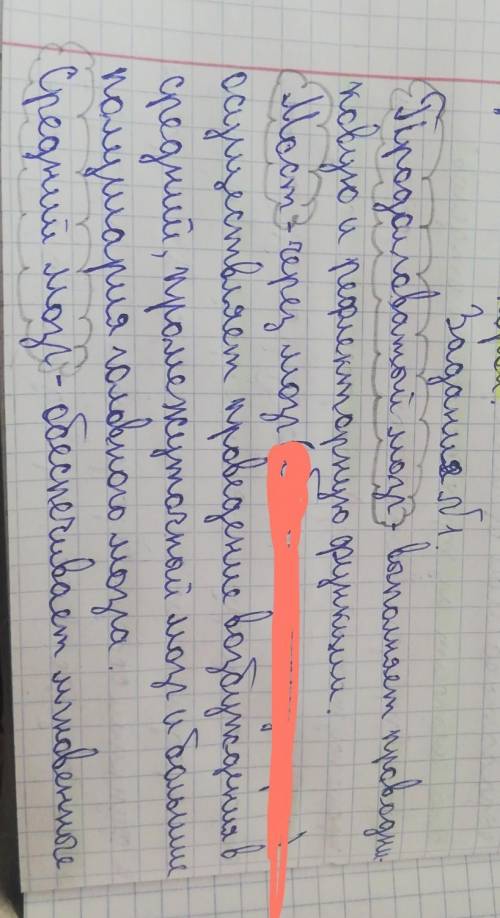 Задания №1.
Продолговатой мозг - выполняет проводни-
ковую и рефлекторную функции.
Мост - через мозг
осуществляет проведение возбуждения в
средний, промежуточной мозг и больших
полушария головного мозга.
Средний мозг - обеспечивает мгновенное